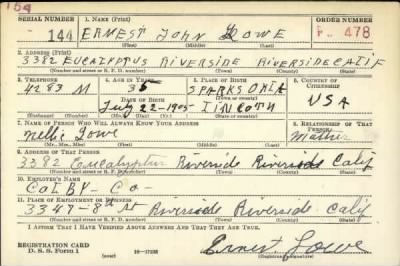 154
SERIAL NUMBER 1. NAME (Print) ORDER NUMBER
144 ERNEST JOHN LOWE 478
(First) (Middle) (Last)
2. ADDRESS (Print)
3382 EUCALYPTUS RIVERSIDE RIVERSIDE CALIF
(Number and street or R. F. D. number) (Town) (County) (State)
3. TELEPHONE 4. AGE IN YEARS 5. PLACE OF BIRTH 6. COUNTRY OF CITIZENSHIP
4283 M 35 SPARKS OKLA
DATE OF BIRTH (Town or county)
July 22-1905 LINCOLN USA
(Mo.) (Day) (Yr.) (State or country)
7. NAME OF PERSON WHO WILL ALWAYS KNOW YOUR ADDRESS 8. RELATIONSHIP OF THAT PERSON
Nellie Lowe Mother
(Mr., Mrs., Miss) (First) (Middle) (Last)
9. ADDRESS OF THAT PERSON
3382 Eucalyptus Riverside Riverside Calif
(Number and street or R. F. D. number) (Town) (County) (State)
10. EMPLOYER'S NAME
COLBY - CO -
11. PLACE OF EMPLOYMENT OR BUSINESS
8th St Riverside Riverside Calif
(Number and street or R. F. D. number) (Town) (County) (State)
I AFFIRM THAT I HAVE VERIFIED ABOVE ANSWERS AND THAT THEY ARE TRUE.
REGISTRATION CARD
D. S. S. Form 1 16-17105 Ernest Lowe
(Registrant's signature)